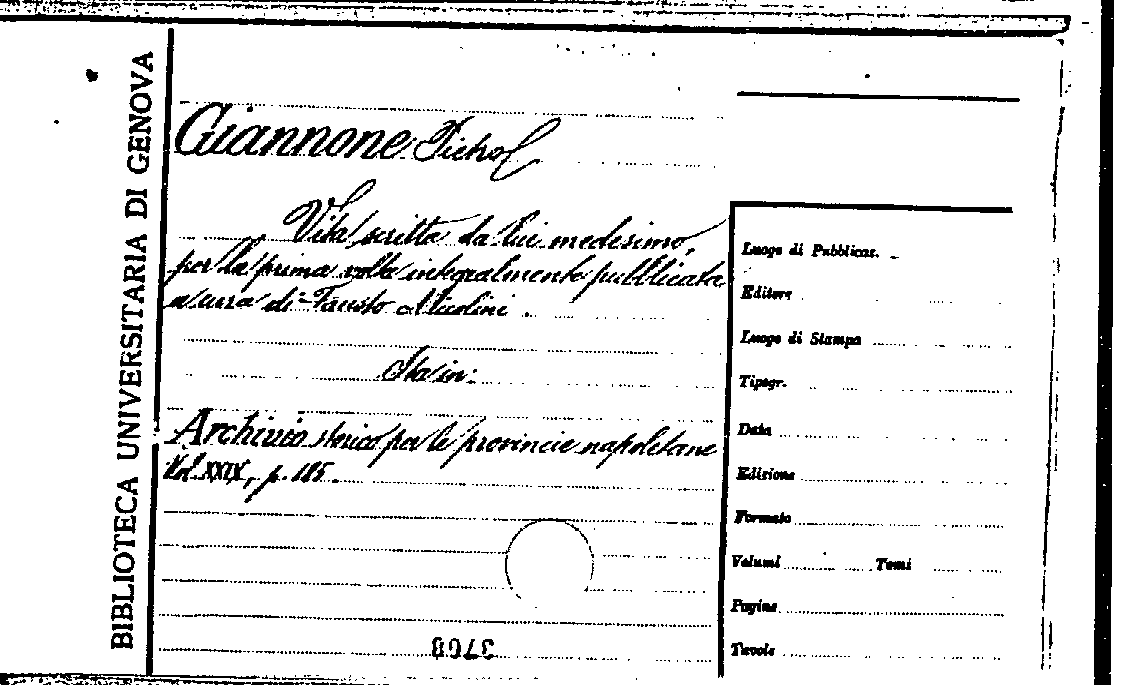 BIBLIOTECA UNIVERSITARIA DI GENOVA
Giannone Pietro
Vita scritta da lui medesimo,
per la prima volta integralmente pubblicata
a cura di Fausto Nicolini.
Sta in:
Archivio storico per le provincie napoletane
Vol. XXIX, p. 185.
3708
Luogo di Pubblicaz.
Editore
Luogo di Stampa
Tipogr.
Data
Edizione
Formato
Volumi Tomi
Pagine
Tavole